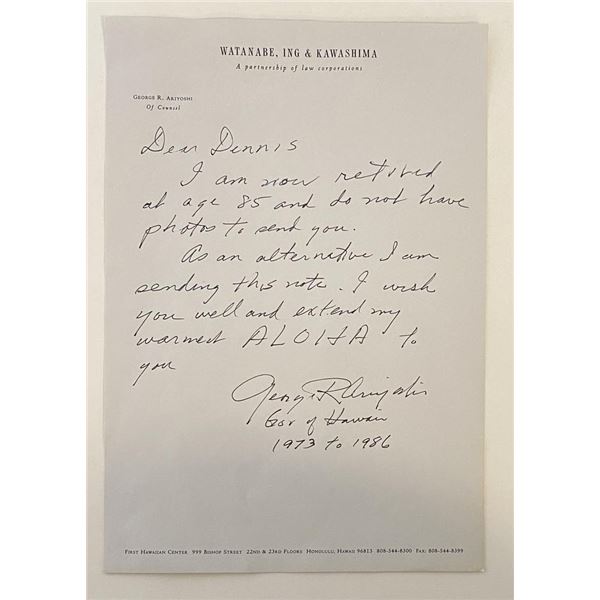 WATANABE, ING & KAWASHIMA
A partnership of law corporations
GEORGE R. ARIYOSHI
Of Counsel
Dear Dennis
I am now retired
at age 85 and do not have
photos to send you.
As an alternative I am
sending this note. I wish
you well and extend my
warmest ALOHA to
you
George R Ariyoshi
Gov of Hawaii
1973 to 1986
FIRST HAWAIIAN CENTER 999 BISHOP STREET 22ND & 23RD FLOORS HONOLULU, HAWAII 96813 808-544-8300 FAX: 808-544-8399